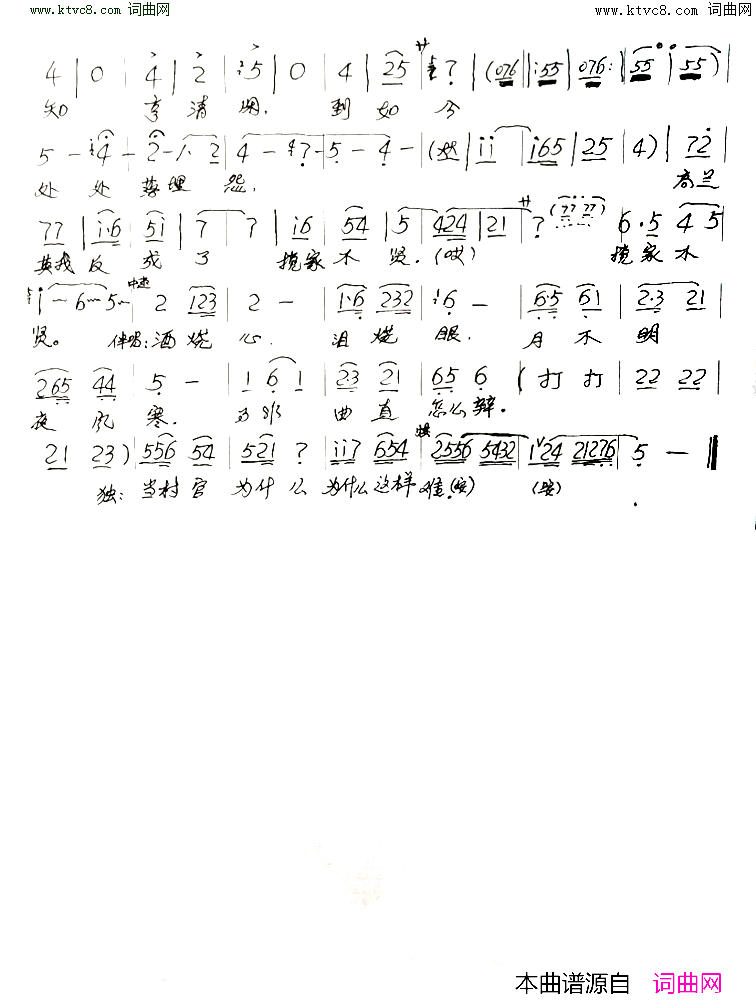 www.ktvc8.com 词曲网 www.ktvc8.com 词曲网
4 | 0 | 4 | 2 | i5 | 0 | 4 | 25 | 7 | (076 | i55 | 076 | 55 i | 55)
知 享 清 到 如 今
5 - 4 - 2 - 1 2 | 4 - 7 - 5 - 4 - | ii | i65 | 25 | 4) | 72
处 处 落 埋 怨. 高 兰
77 | i·6 | 5i | 7 | 7 | i6 | 54 | 5 | 424 | 21 | 7 (77 77) 6·5 4 5
英 我 反 成 了 搅 家 不 贤. (哎) 搅 家 不
i - 6 - 5 - 中速 2 123 | 2 - | 1·6 232 | 6 - | 6·5 61 | 2·3 21
贤。 伴唱: 酒 烧 心. 泪 烧 眼. 月 不 明
265 44 | 5 - | 1 6 1 | 23 21 | 65 6 | (打 打 | 22 22
夜 风 寒. 曲 直 怎么 辩.
21 23) | 556 54 | 521 7 | ii7 654 | 2556 5432 | 124 21276 | 5 - ‖
独: 当村官 为什么 为什么这样 难.
本曲谱源自 词曲网